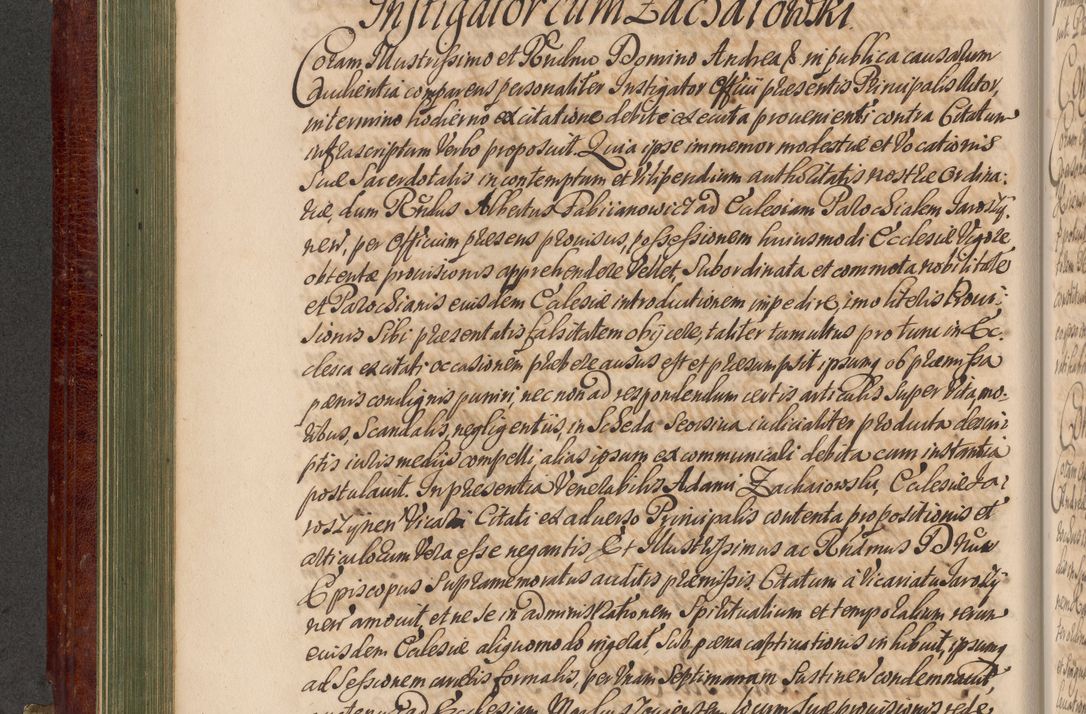 Instigator cum Zachaiowski.
Coram Illustrissimo et Rndmo Domino Andrea & in publica causarum
Audientia comparens personaliter Instigator Officii præsentis Principalis Actor,
in termino hodierno ex citatione debite executa provenienti contra Citatum
infrascriptum Verbo proposuit. Quia ipse immemor modestiæ et Vocationis
Suæ Sacerdotalis in contemptum et Vilipendium authoritatis nostræ Ordina:
riæ, dum Rndus Albertus Fabicianowicz ad Ecclesiam Parochialem Iaroszy:
new, per Officium præsens provisus, possessionem huiusmodi Ecclesiæ Vigore
obtentæ provisionis apprehendere Vellet, Subordinata et commota nobilitate
et Parochianis eiusdem Ecclesiæ introductionem impedire, imo literis Provi:
sionis Sibi præsentatis falsitatem obijcere, taliter tumultus pro tunc in Ec:
clesia excitati occasionem præbere ausus est et præsumpsit ipsumq ob præmissa
pænis condignis puniri, nec non ad respondendum certis articulis Super Vita, mo:
ribus, Scandalis, negligentiis, in Scheda Seorsiva iudicialiter producta descri:
ptis iuris mediis compelli, alias ipsum excommunicari debita cum instantia
postulavit. In præsentia Venerabilis Adami Zachaiowski, Ecclesiæ Ia:
roszynen Vicarii Citati ex adverso Principalis contenta propositionis et
articulorum Vera esse negantis Et Illustrissimus ac Rndmus D
Episcopus Supramemoratus auditis præmissis Citatum à Vicariatu Iaroszy
new amovit, et ne Se in administrationem Spiritualium et temporalium rerum
eiusdem Ecclesiæ aliquomodo ingerat Sub pæna captivationis inhibuit, ipsumq
ad Sessionem carceris formalis, per unam Septimanam Sustinen condemnavit,
quatenus ad Ecclesiam locum Suæ provisionis rede: